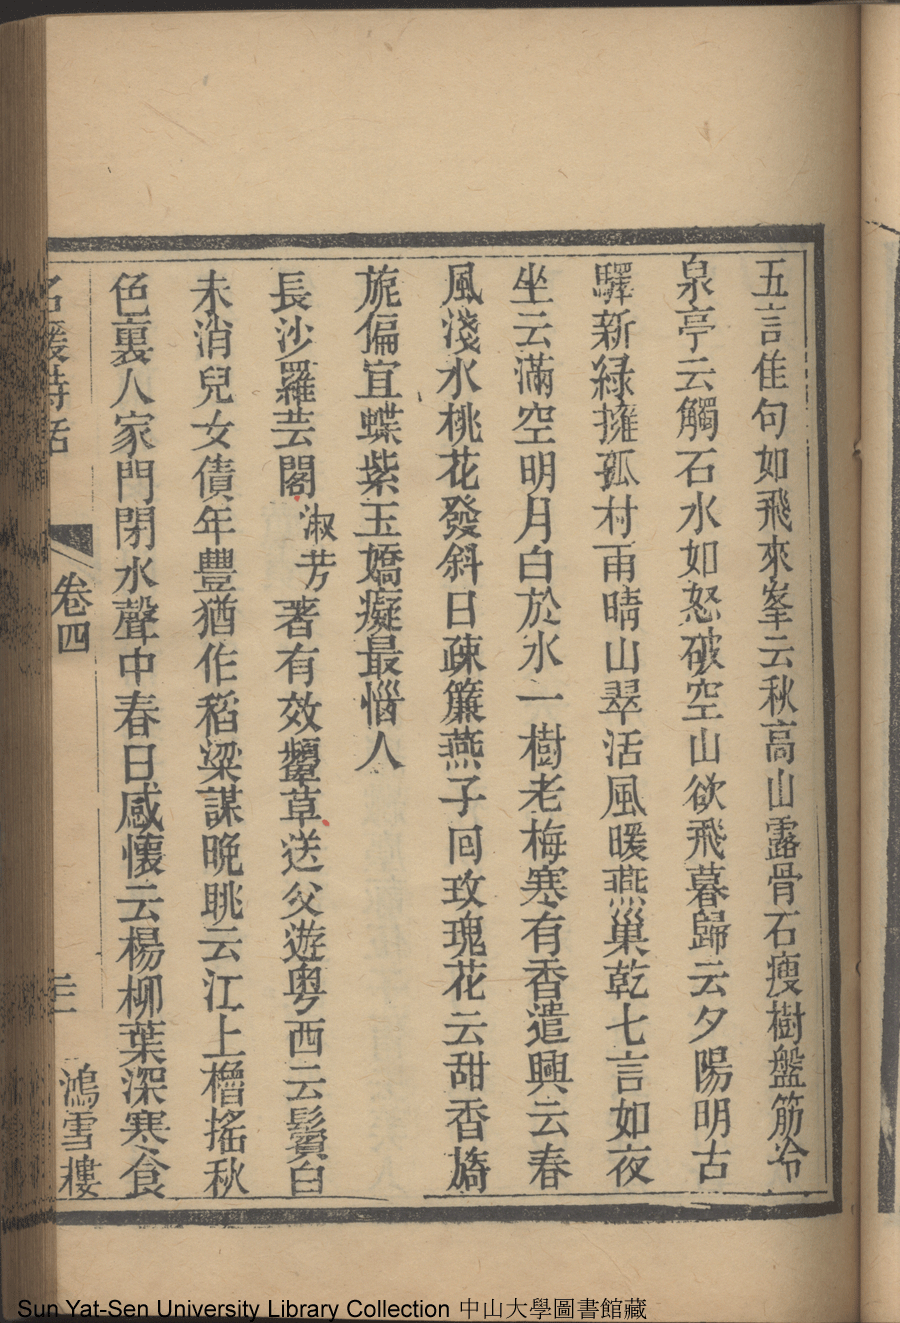 五言佳句如飛來峯云秋高山露骨石瘦樹盤筋冷
泉亭云觸石水如怒破空山欲飛暮歸云夕陽明古
驛新緑擁孤村雨晴山翠活風暖燕巢乾七言如夜
坐云滿空明月白於水一樹老梅寒有香遣興云春
風淺水桃花發斜日疎簾燕子回玫瑰花云甜香旖
旎偏宜蝶紫玉嬌癡最惱人
長沙羅芸閣淑芳著有效顰草送父遊粤西云鬢白
未消兒女債年豐猶作稻粱謀晩眺云江上櫓搖秋
色裏人家門閉水聲中春日感懷云楊柳葉深寒食
名媛詩話 卷四 三 鴻雪樓
Sun Yat-Sen University Library Collection 中山大學圖書館藏